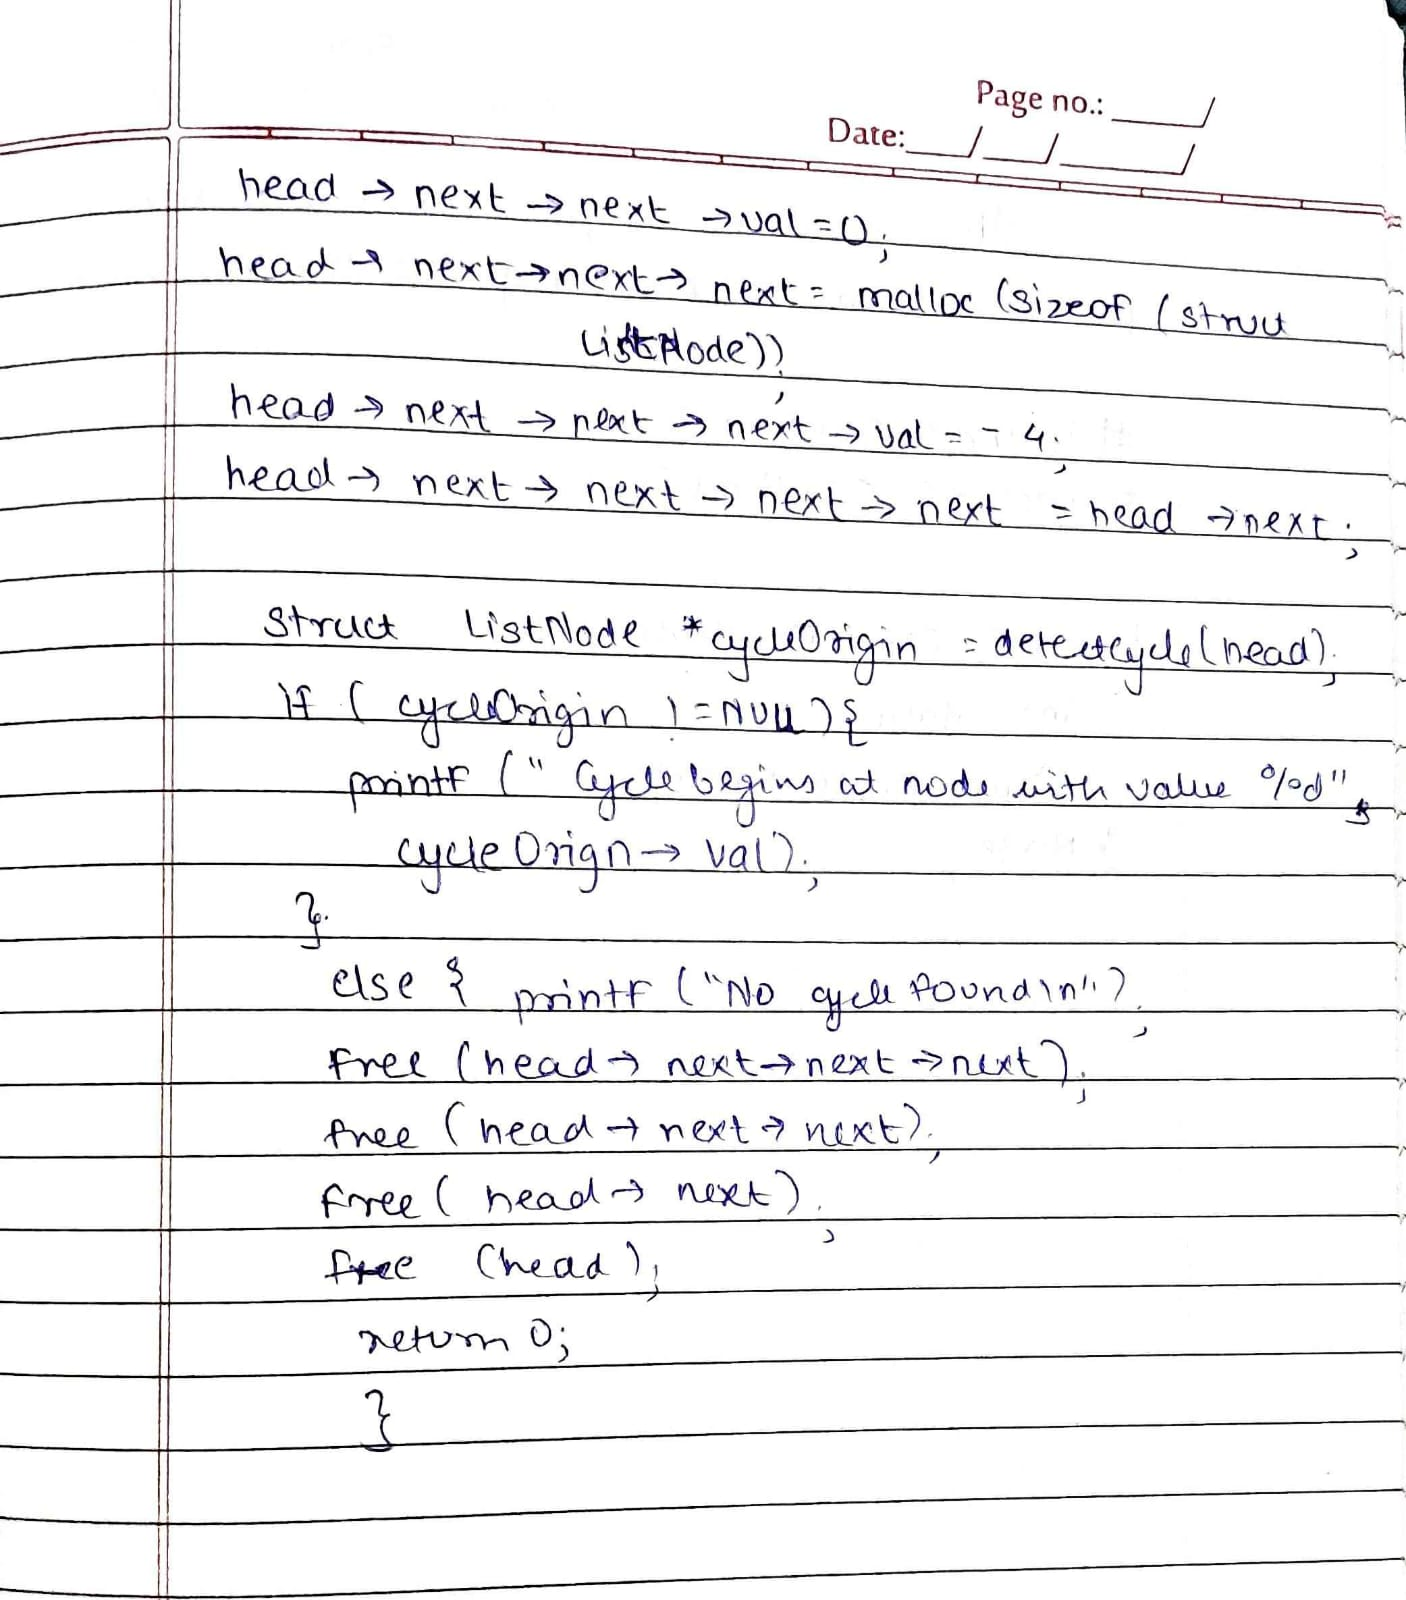 Page no.:
Date:
head → next → next → val = 0;
head → next → next → next = malloc (sizeof (struct
ListNode));
head → next → next → next → val = - 4;
head → next → next → next → next = head → next;
Struct ListNode *cycleOrigin = detectcycle(head);
if ( cycleOrigin != NULL ) {
printf (" Cycle begins at node with value %d",
cycleOrign → val);
}
else { printf ("No cycle found\n");
free (head → next → next → next);
free (head → next → next);
free ( head → next);
free (head);
return 0;
}